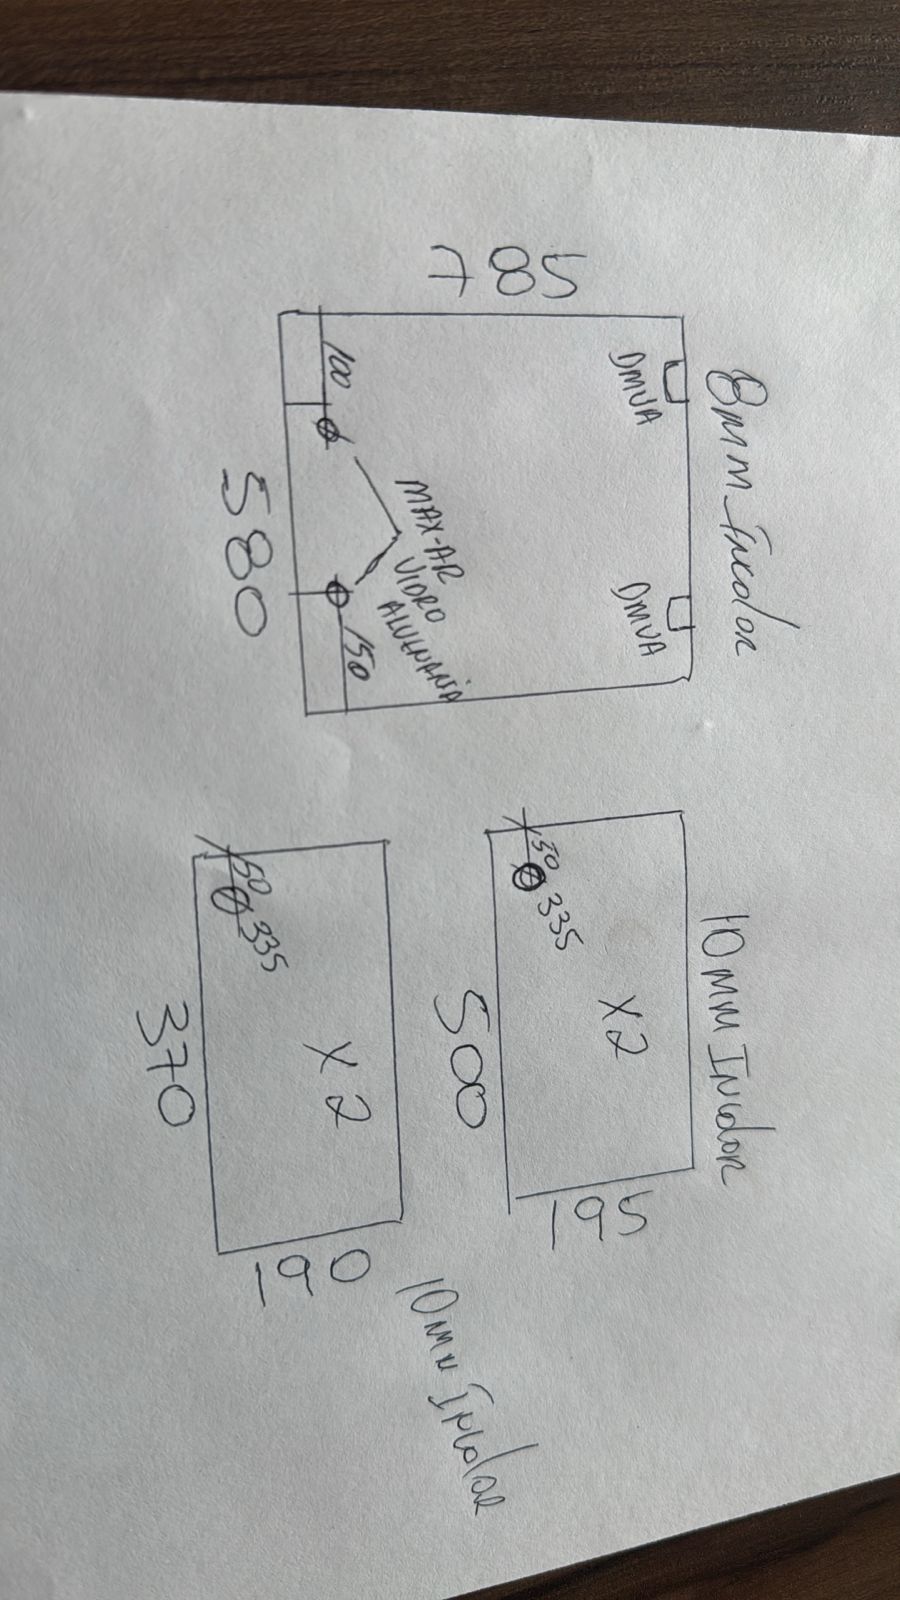 8mm Incolor
DMVA
DMVA
785
100
MAX-AR
VIDRO
ALVENARIA
150
580
10MM Incolor
X2
50
335
500
195
X2
50
335
370
190
10MM Incolor